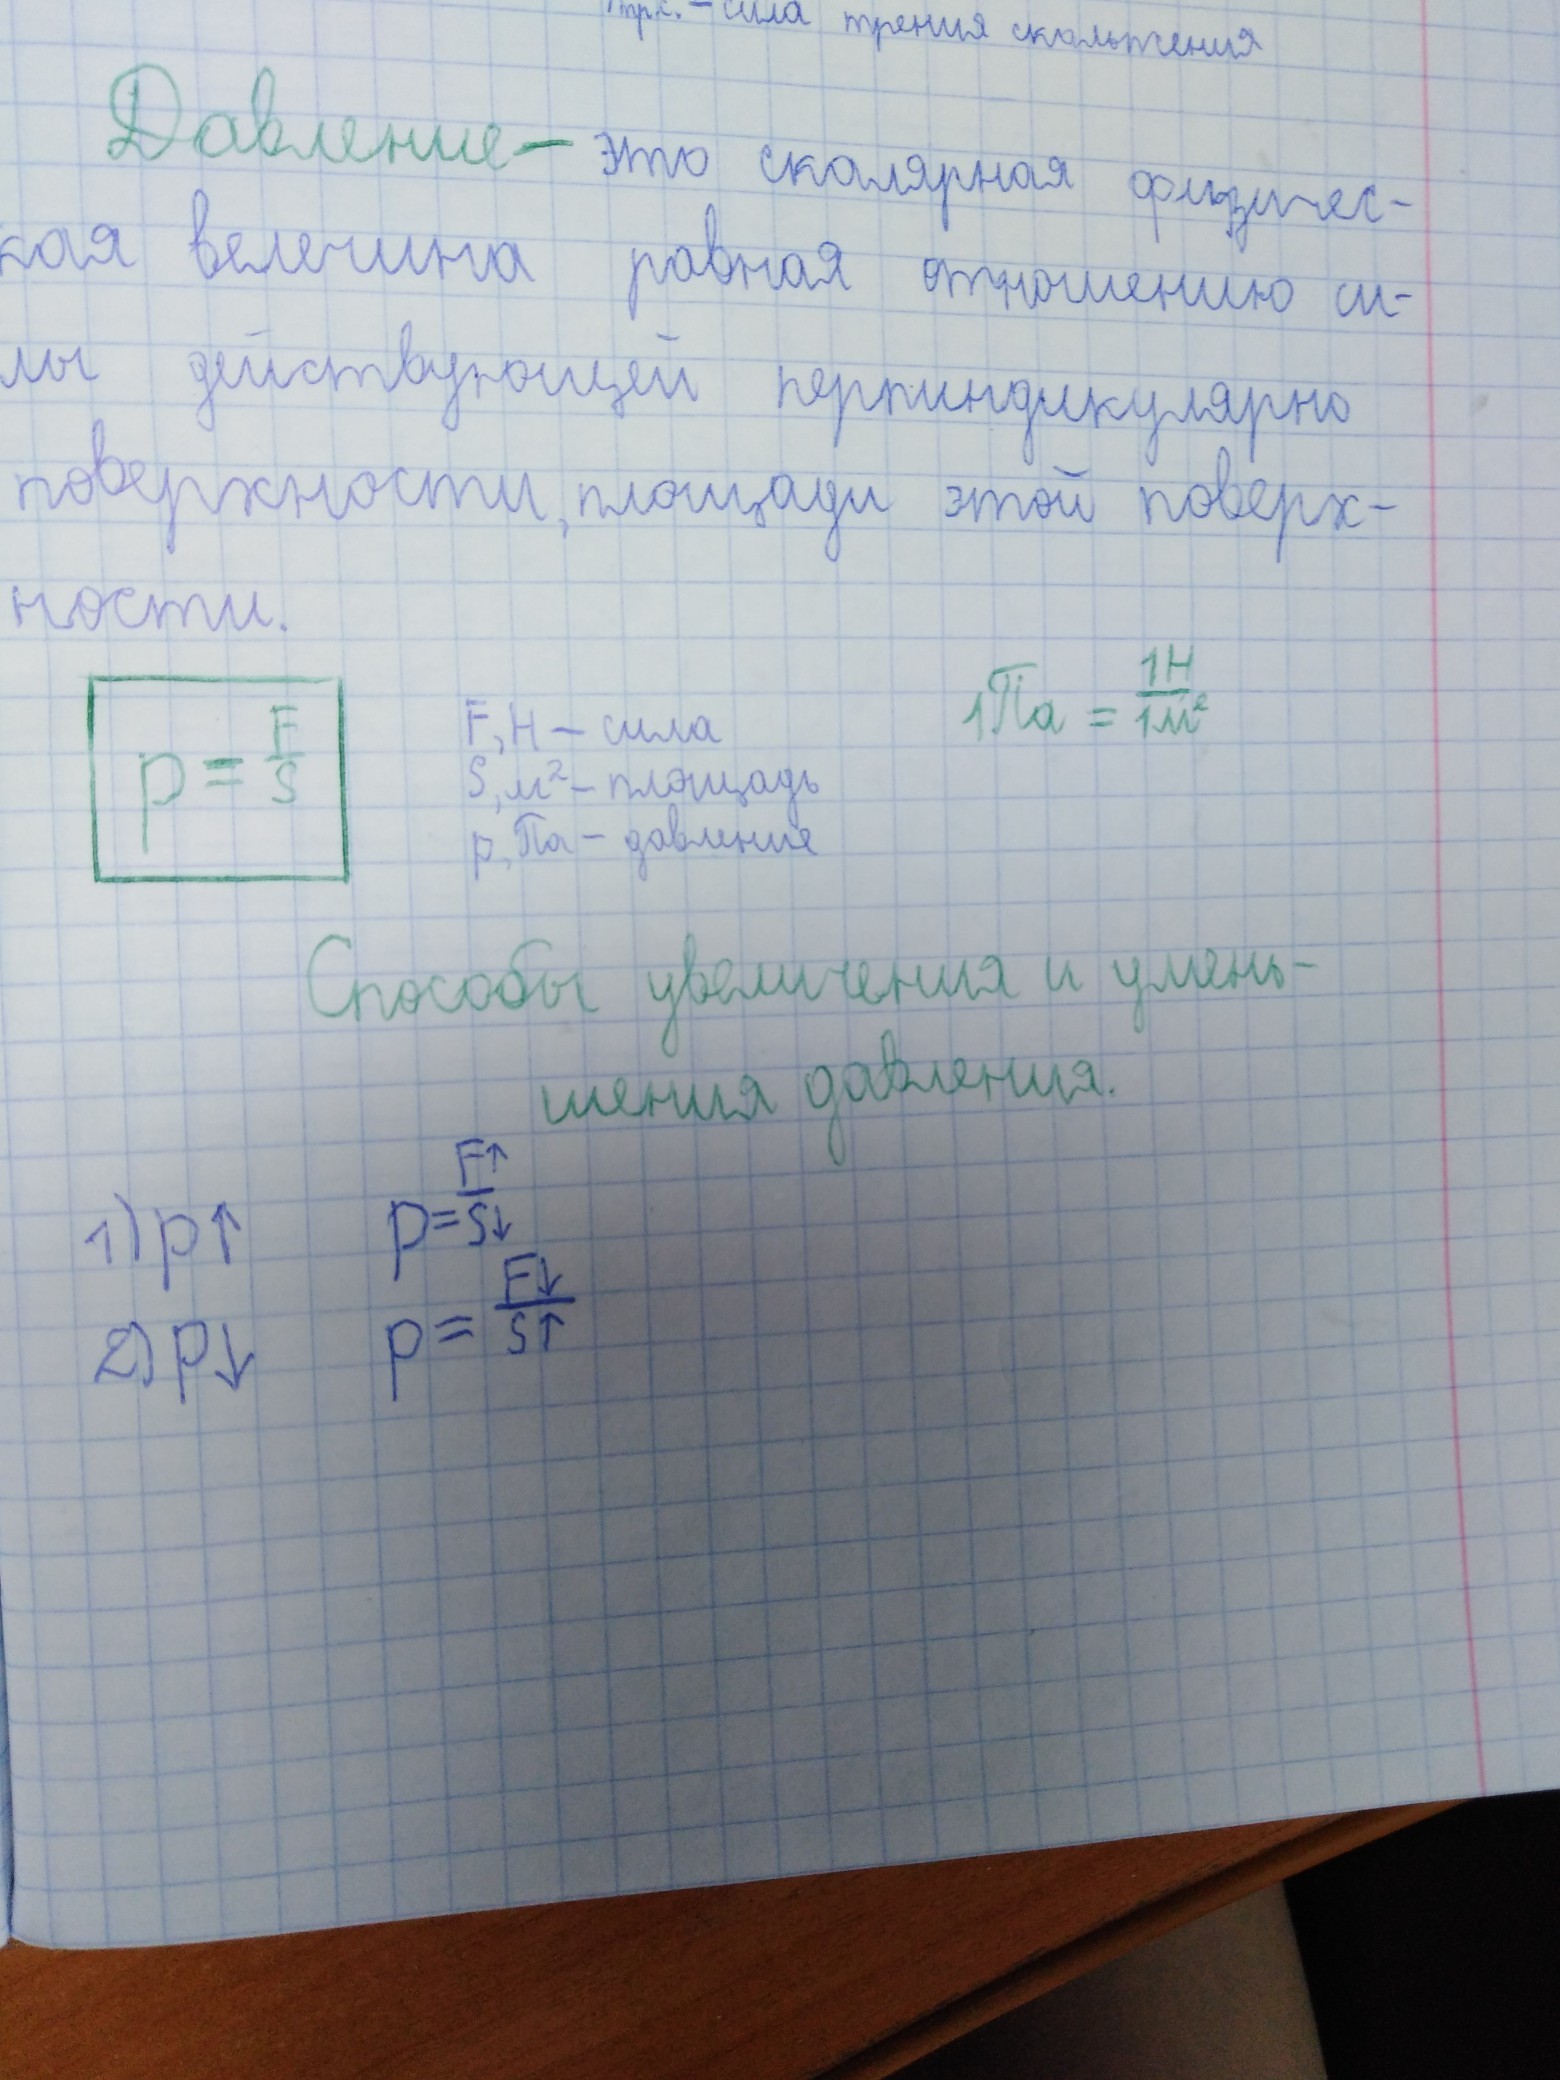 тр.с. – сила трения скольжения
Давление – это скалярная физичес-
кая велечина равная отношению си-
лы действующей перпиндикулярно
поверхности, площади этой поверх-
ности.
p = F/S
F, Н – сила
S, м² – площадь
p, Па – давление
1Па = 1Н/1м²
Способы увеличения и умень-
шения давления.
1) p↑ p = F↑/S↓
2) p↓ p = F↓/S↑